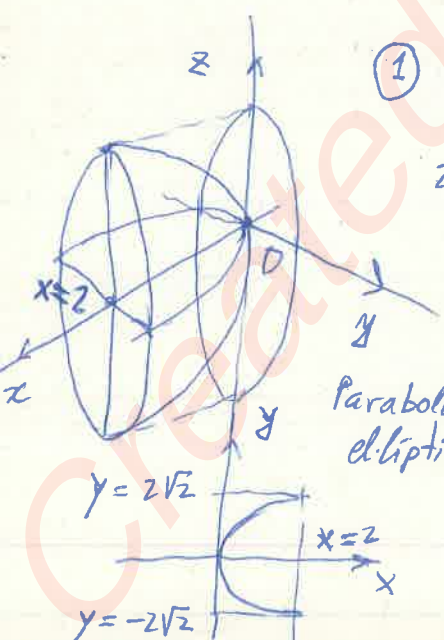 z
1
x=2
O
y
x
Parabol
elípti
y
y = 2√2
x=2
x
y = -2√2
Created